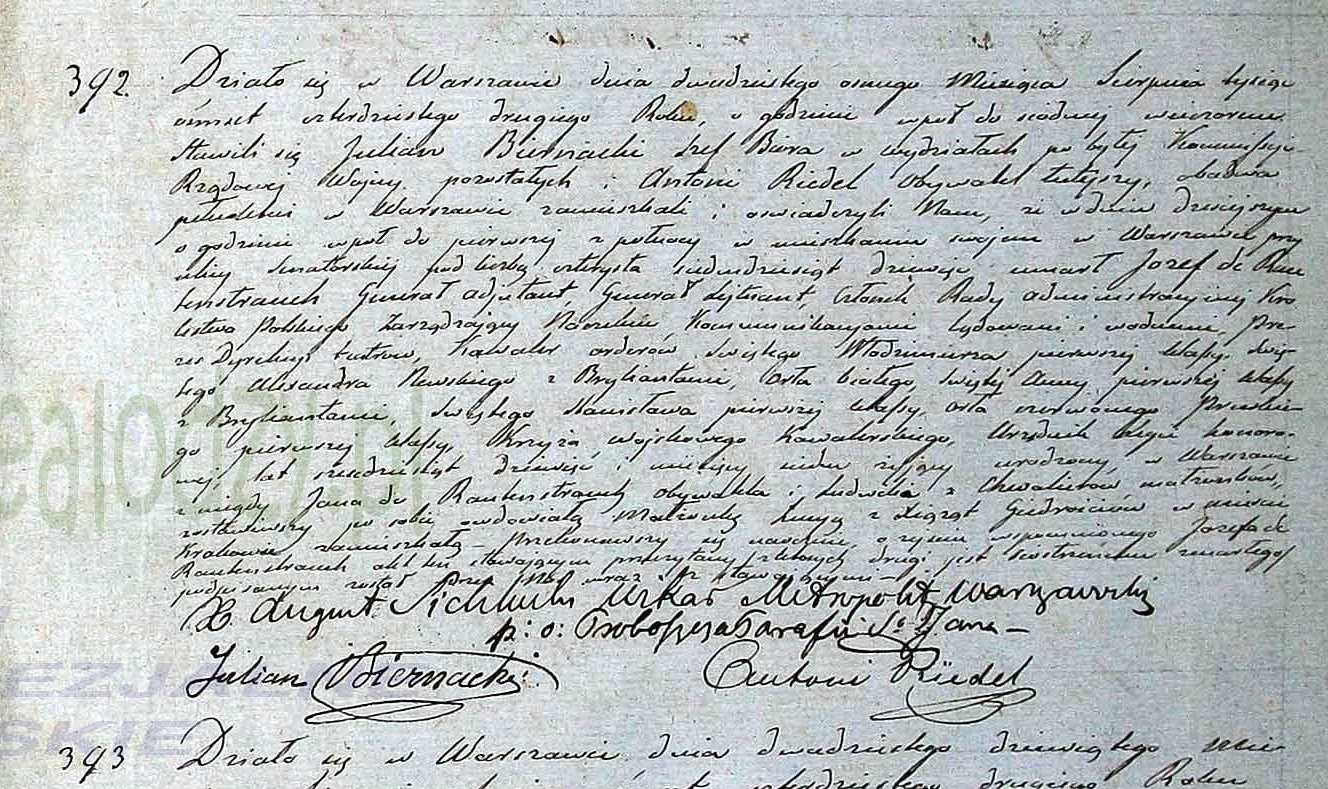 392. Działo się w Warszawie dnia dwudziestego osmego Miesiąca Sierpnia tysiąc
ośmset czterdziestego drugiego Roku, o godzinie wpół do siodmej wieczorem
Stawili się Julian Biernacki Szef Biura w wydziałach po byłej Kommissyi
Rządowej Wojny pozostałych i Antoni Riedel Obywatel tutejszy, obadwa
pełnoletni w Warszawie zamieszkali i oswiadczyli Nam, że w dniu dzisiejszym
o godzinie wpół do pierwszej z północy w mieszkaniu swojem w Warszawie przy
ulicy Senatorskiej pod liczbą czterysta siedmdziesiąt dziewięć, umarł Jozef de Rau
tenstrauch Generał adjutant, Generał Lejtnant, Członek Rady administracyjnej Kró
lestwa Polskiego Zarządzający Naczelnie Kommunikacjami Lądowemi i wodnemi, Pre-
zes Dyrekcyi teatrow, Kawaler orderów Swiętego Włodzimierza pierwszej klassy, Swię-
tego Alexandra Newskiego z Bryliantami, Orła białego, Swiętej Anny pierwszej klassy
z Bryliantami, Swiętego Stanisława pierwszej klassy, orła czerwonego Pruskie-
go pierwszej klassy, Krzyża wojskowego Kawalerskiego, Urzędnik Legii honoro-
wej, lat sześdziesiąt dziewięć i miesięcy siedm żyjący urodzony w Warszawie
z między Jana de Rautenstrauch obywatela i Ludwiki z małżonków,
zostawiwszy po sobie owdowiałą Małżonkę Łucyą z Xiążąt Giedroiciow w mieście
Krakowie zamieszkałą – Przekonawszy się naocznie o zejściu wspomnionego Jozefa de
Rautenstrauch akt ten stawającym przeczytany z ktorych drugi jest siostrzeńcem zmarłego
podpisanym został Przez Nas wraz z stawającymi –
X. August Wikar Metropolit Warszawski
p: o: Proboszcza Parafii Sº Jana –
Julian Biernacki Antoni Riedel
393 Działo się w Warszawie dnia dwudziestego dziewiątego Mie-
czterdziestego drugiego Roku